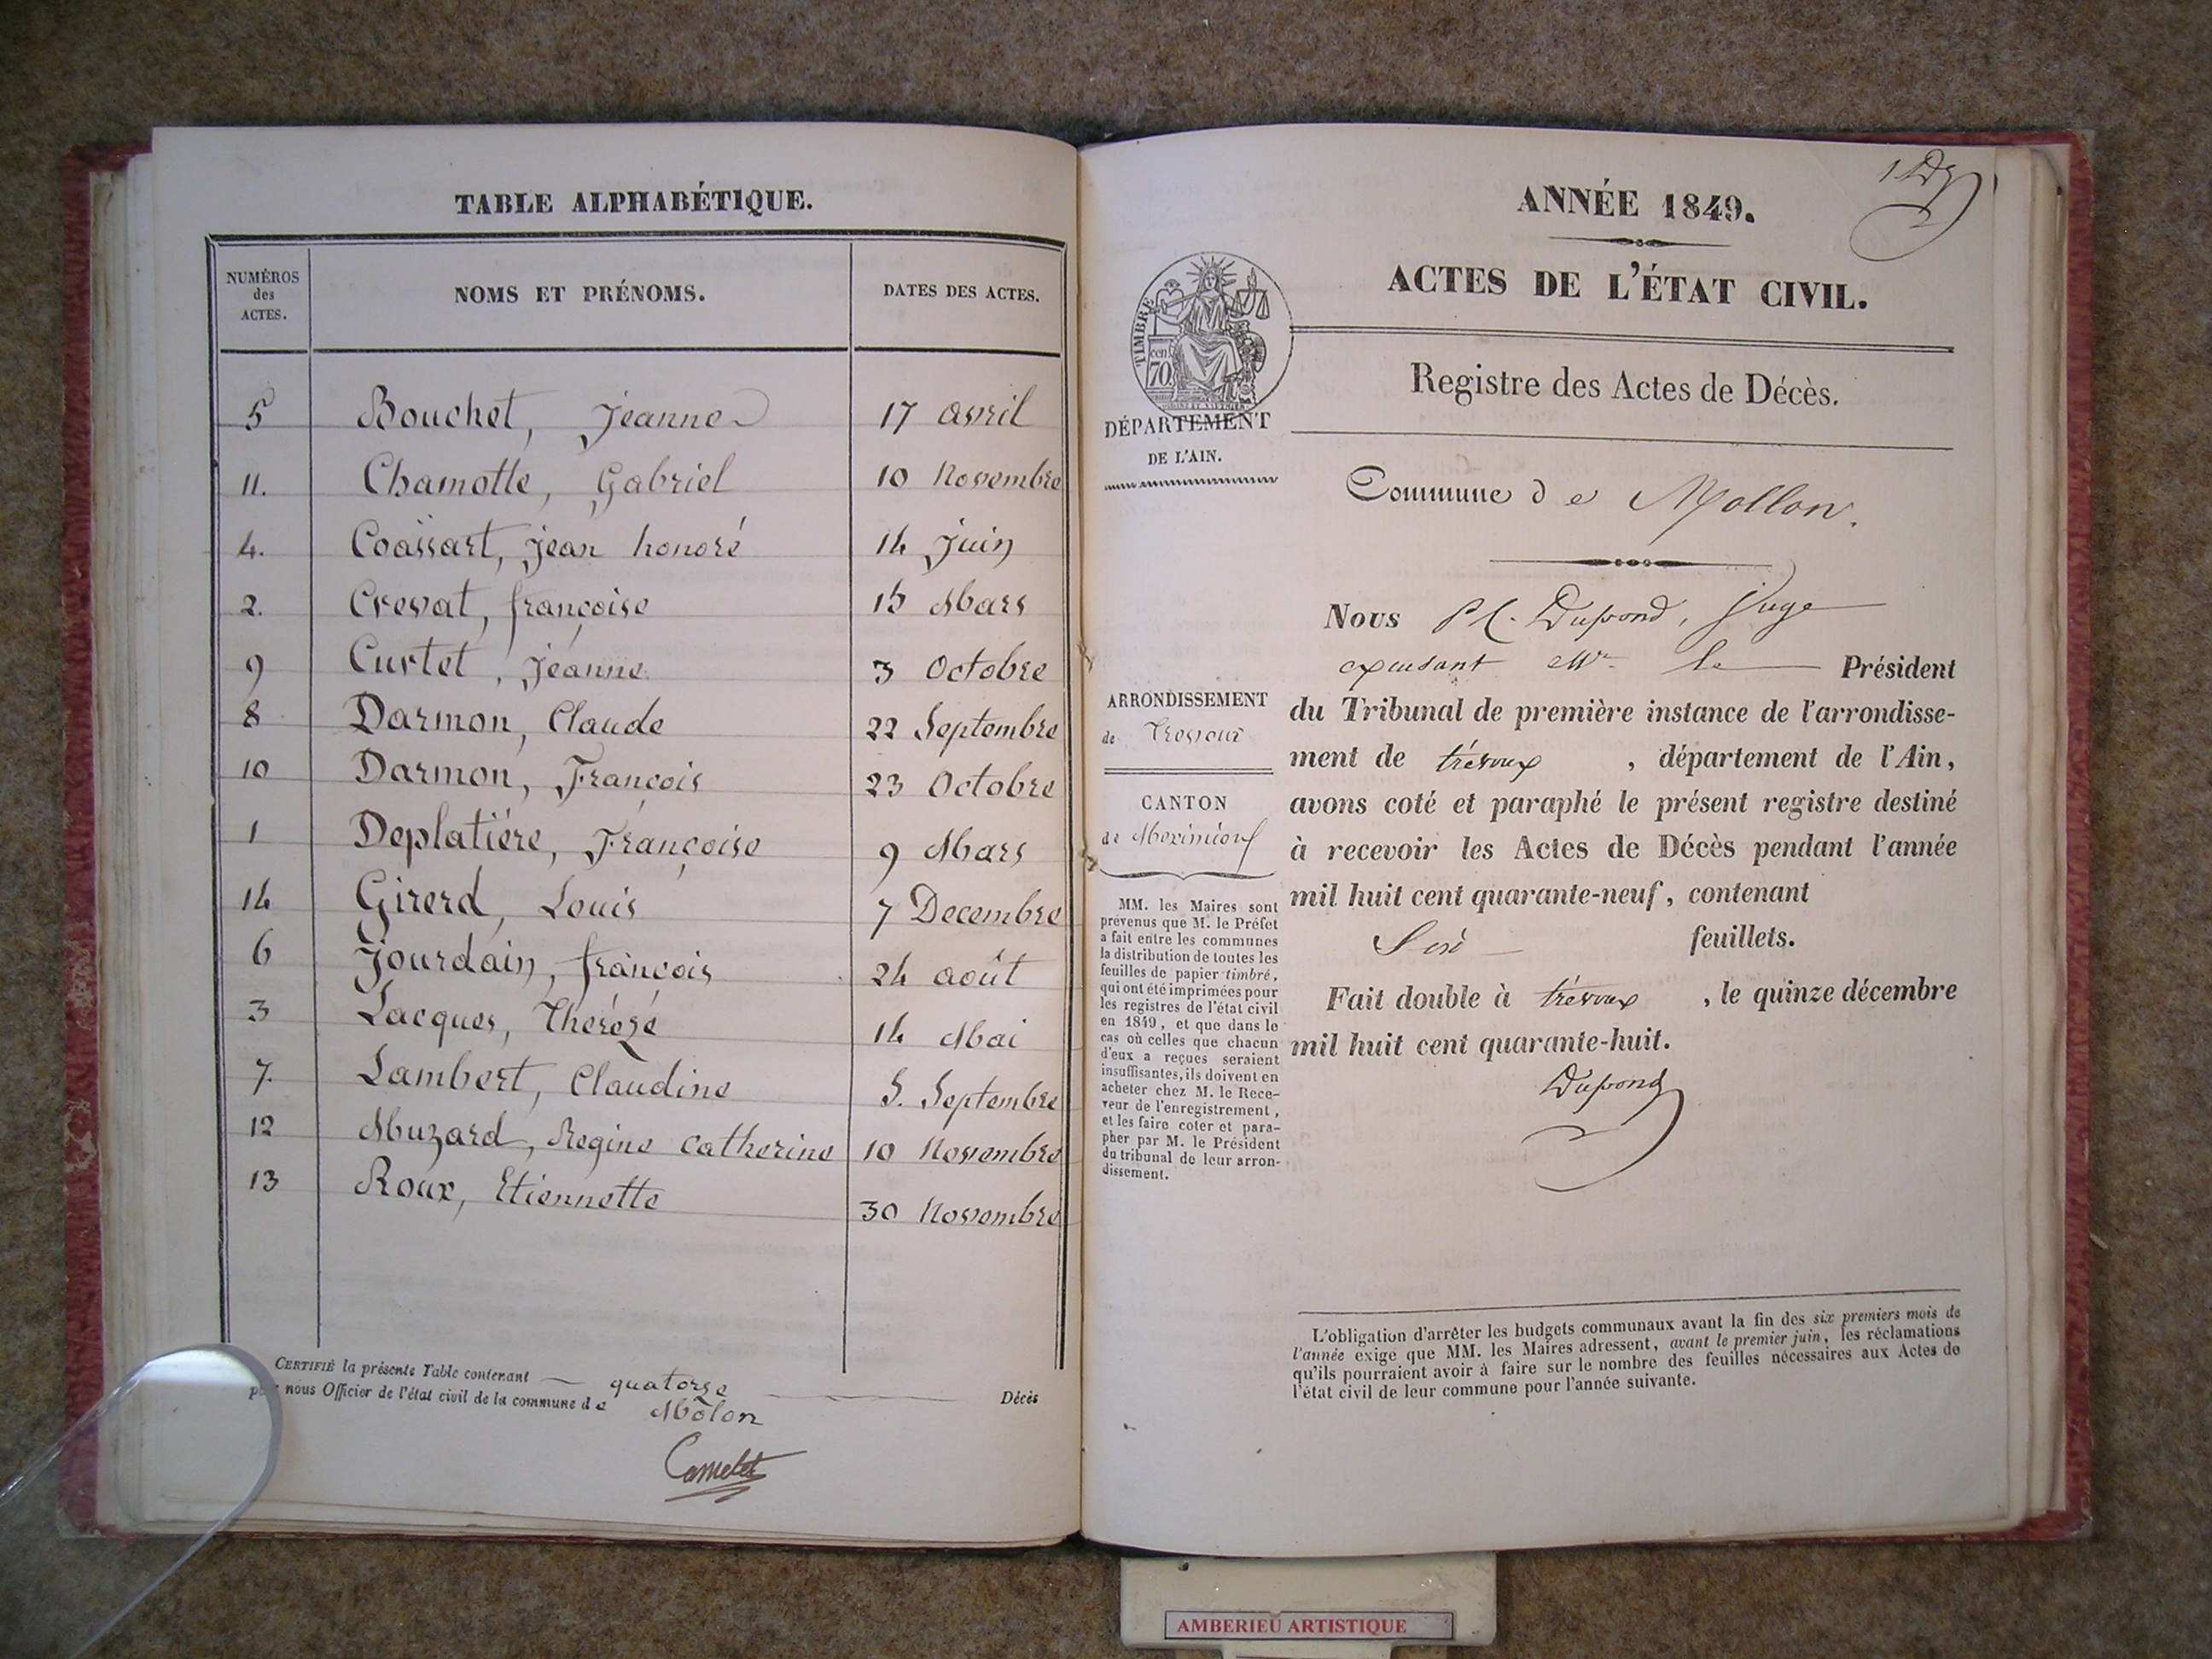 TABLE ALPHABÉTIQUE.
NUMÉROS des ACTES. NOMS ET PRÉNOMS. DATES DES ACTES.
5 Bouchet, Jeanne 17 avril
11. Chamotte, Gabriel 10 Novembre
4. Coassart, Jean honoré 14 Juin
2. Crevat, françoise 15 Mars
9 Curtet, Jeanne 3 Octobre
8 Darmon, Claude 22 Septembre
10 Darmon, François 23 Octobre
1 Deplatière, Françoise 9 Mars
14 Girerd, Louis 7 Decembre
6 Jourdain, françois 24 août
3 Lacques, Thérèze 14 Mai
7. Lambert, Claudine 5. Septembre
12 Muzard, Regine Catherine 10 Novembre
13 Roux, Etiennette 30 Novembre
CERTIFIÉ la présente Table contenant quatorze Décès
par nous Officier de l'état civil de la commune de Môlon
Camelet
ANNÉE 1849.
ACTES DE L'ÉTAT CIVIL.
Registre des Actes de Décès.
TIMBRE
cen.
70
DÉPARTEMENT
DE L'AIN.
Commune de Mollon.
Nous Dupond, Juge
Mr. le Président
du Tribunal de première instance de l'arrondisse-
ment de trévoux, département de l'Ain,
avons coté et paraphé le présent registre destiné
à recevoir les Actes de Décès pendant l'année
mil huit cent quarante-neuf, contenant
feuillets.
Fait double à trévoux, le quinze décembre
mil huit cent quarante-huit.
Dupond
ARRONDISSEMENT
de Trevoux
CANTON
de Meximieux
MM. les Maires sont
prévenus que M. le Préfet
a fait entre les communes
la distribution de toutes les
feuilles de papier timbré,
qui ont été imprimées pour
les registres de l'état civil
en 1849, et que dans le
cas où celles que chacun
d'eux a reçues seraient
insuffisantes, ils doivent en
acheter chez M. le Rece-
veur de l'enregistrement,
et les faire coter et para-
pher par M. le Président
du tribunal de leur arron-
dissement.
L'obligation d'arrêter les budgets communaux avant la fin des six premiers mois de
l'année exige que MM. les Maires adressent, avant le premier juin, les réclamations
qu'ils pourraient avoir à faire sur le nombre des feuilles nécessaires aux Actes de
l'état civil de leur commune pour l'année suivante.
AMBERIEU ARTISTIQUE